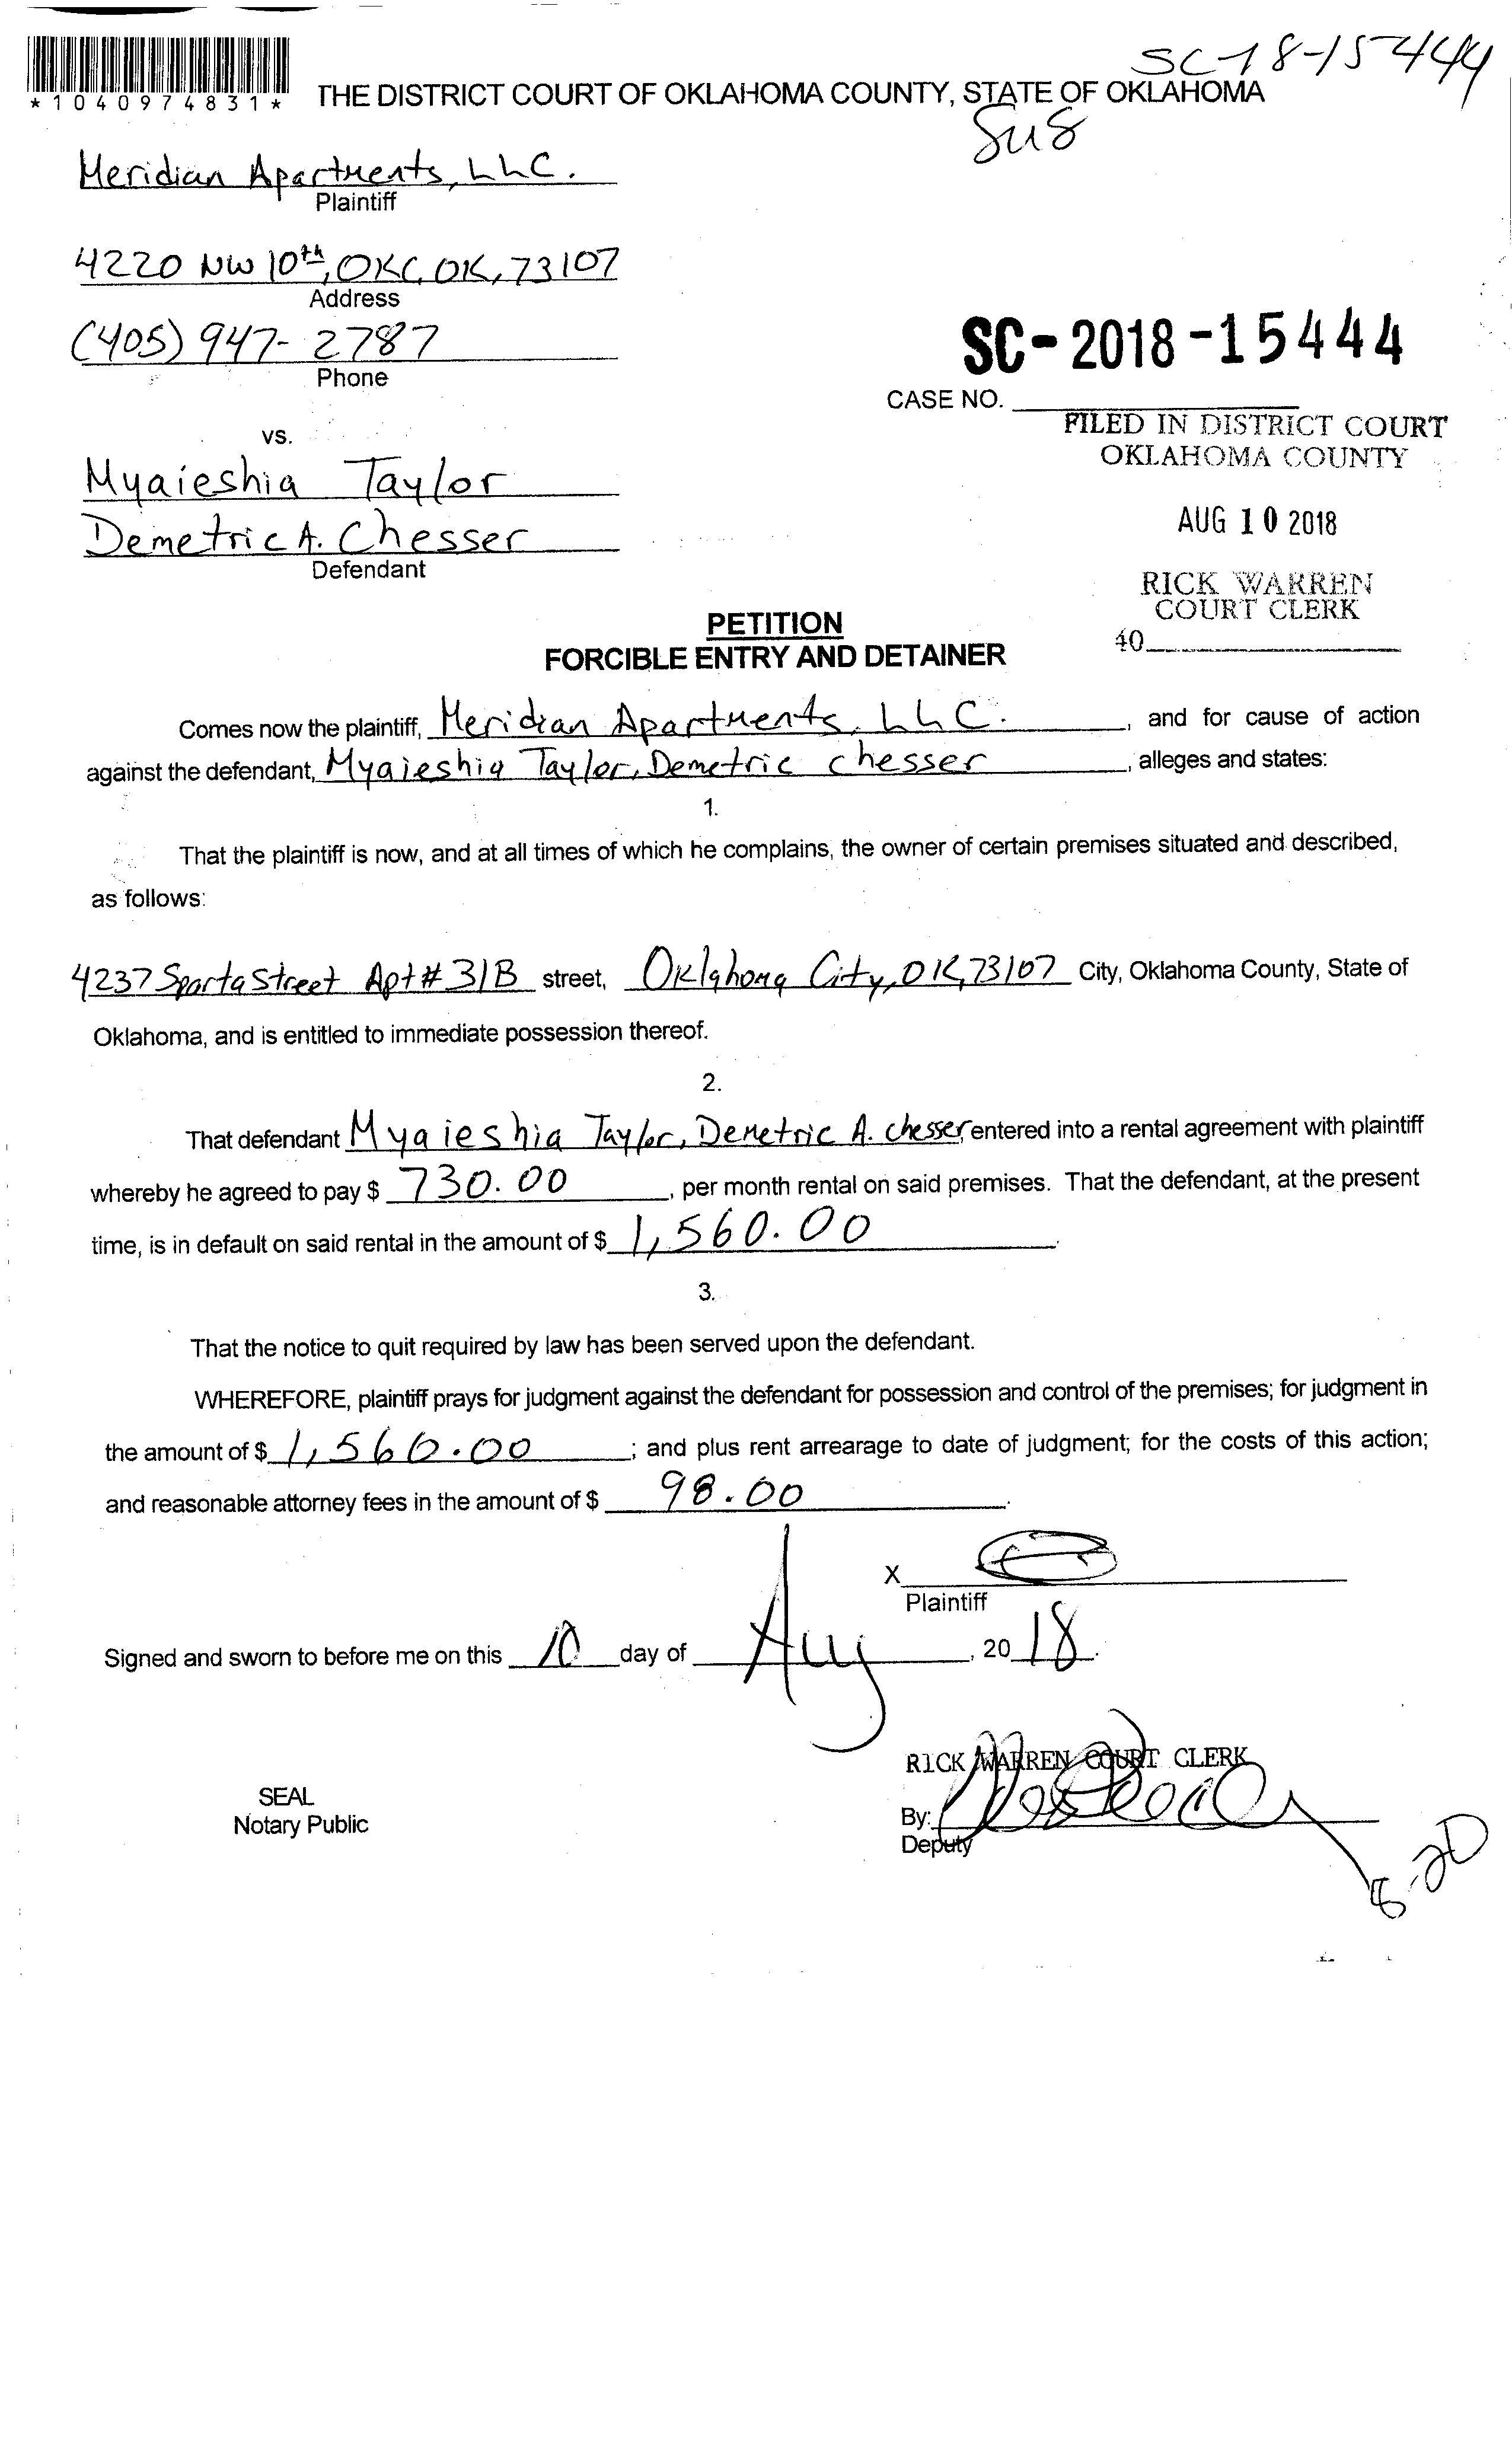 SC-18-15444
*1040974831*
THE DISTRICT COURT OF OKLAHOMA COUNTY, STATE OF OKLAHOMA
Meridian Apartments, LLC.
Plaintiff
4220 NW 10th, OKC, OK, 73107
Address
(405) 947-2787
Phone
SC-2018-15444
CASE NO.
FILED IN DISTRICT COURT
OKLAHOMA COUNTY
vs.
Myaieshia Taylor
AUG 10 2018
Demetric A. Chesser
Defendant
RICK WARREN
COURT CLERK
40
PETITION
FORCIBLE ENTRY AND DETAINER
Comes now the plaintiff, Meridian Apartments, LLC. , and for cause of action
against the defendant, Myaieshia Taylor, Demetric chesser , alleges and states:
1.
That the plaintiff is now, and at all times of which he complains, the owner of certain premises situated and described,
as follows:
4237 Sparta Street Apt# 31B street, Oklahoma City, OK, 73107 City, Oklahoma County, State of
Oklahoma, and is entitled to immediate possession thereof.
2.
That defendant Myaieshia Taylor, Demetric A. chesser, entered into a rental agreement with plaintiff
whereby he agreed to pay $ 730.00 , per month rental on said premises. That the defendant, at the present
time, is in default on said rental in the amount of $ 1,560.00 .
3.
That the notice to quit required by law has been served upon the defendant.
WHEREFORE, plaintiff prays for judgment against the defendant for possession and control of the premises; for judgment in
the amount of $ 1,560.00 ; and plus rent arrearage to date of judgment; for the costs of this action;
and reasonable attorney fees in the amount of $ 98.00 .
X
Plaintiff
Signed and sworn to before me on this 10 day of Aug , 2018.
RICK WARREN COURT CLERK
SEAL
Notary Public
By:
Deputy